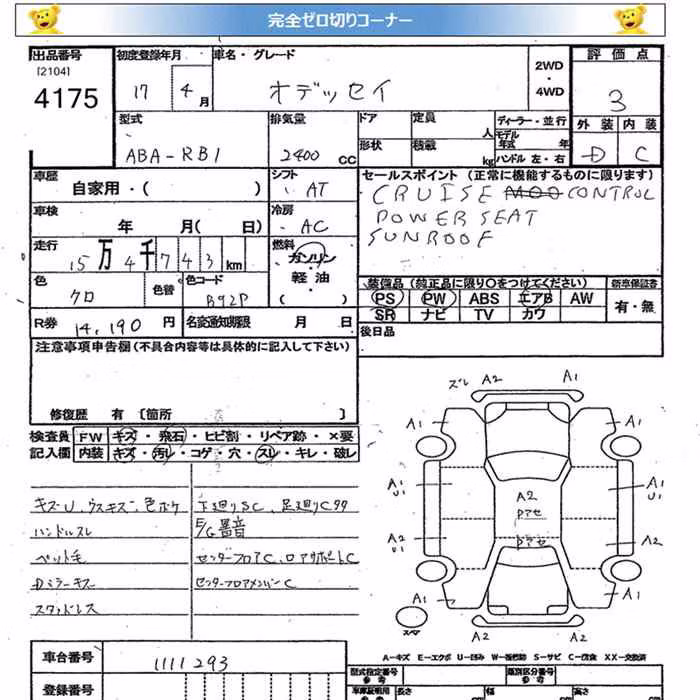 完全ゼロ切りコーナー
出品番号
[2104]
4175
初度登録年月
17 4月
車名・グレード
オデッセイ
2WD
・
4WD
評価点
3
外装 内装
D C
型式
ABA-RB1
排気量
2400 CC
ドア
形状
定員
人
積載
kg
ディーラー・並行
モデル
年式 年
ハンドル 左・右
車歴
自家用・( )
シフト
AT
車検
年 月( 日)
冷房
AC
セールスポイント (正常に機能するものに限ります)
CRUISE CONTROL
POWER SEAT
SUNROOF
走行
15万4千743km
燃料
ガソリン
・
軽油
( ・ )
色
クロ
色替
色コード
B92P
R券 14,190 円
名変通知期限 月 日
装備品 (純正品に限り○をつけてください)
PS PW ABS エアB AW
SR ナビ TV カワ
新車保証書
有・無
後日品
注意事項申告欄 (不具合内容等は具体的に記入して下さい)
修復歴 有 [箇所 ]
検査員
記入欄
FW キズ・飛石・ヒビ割・リペア跡・×要
内装 キズ・汚レ・コゲ・穴・スレ・キレ・破レ
キズU、ウスキズ、色ボケ
ハンドルスレ
ペット毛
Dミラーキズ
スタッドレス
下廻りSC、足廻りC
E/G 異音
センターフロアC、ロアサポートC
センターフロアメンバーC
ズレ A2 A1
A1 A1
A1
U1
A1
U1
A2
Pアセ
Pアセ
A2
U1
A2
A1 A1
A2 A2
スペア
A-キズ E-エクボ U-凹み W-補修跡 S-サビ C-腐食 XX-交換済
車台番号
1111293
登録番号
型式指定番号
参考
類別区分番号
参考
車庫証明用
参考
長さ
幅
高さ